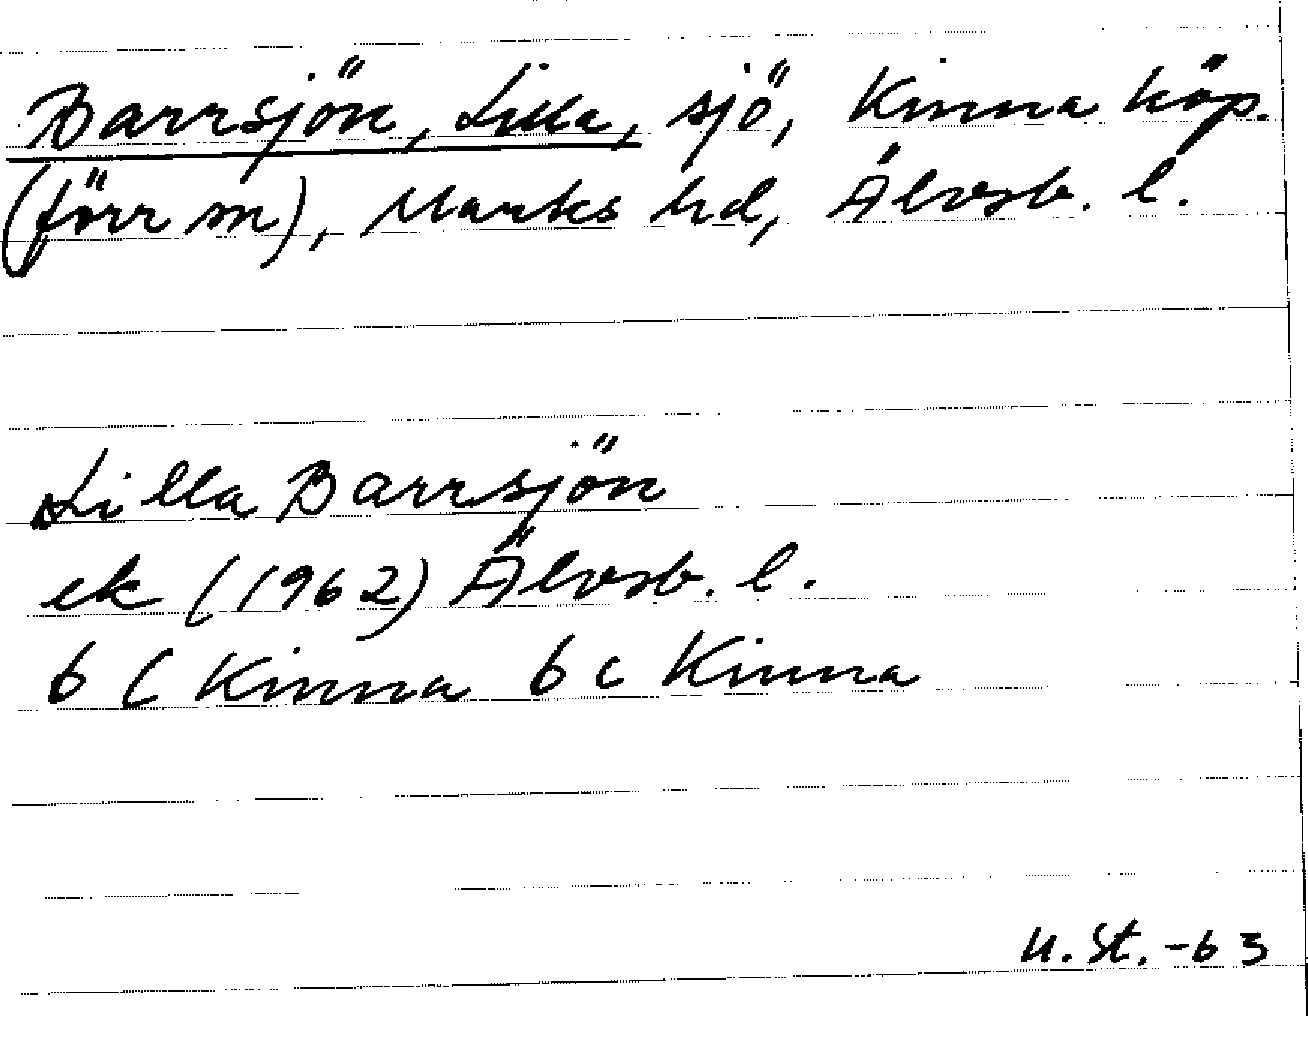 Barrsjön, Lilla, sjö, Kinna köp.
(förr sn), Marks hd, Älvsb. l.
Lilla Barrsjön
ek (1962) Älvsb. l.
6 C Kinna 6 c Kinna
U. St. -63